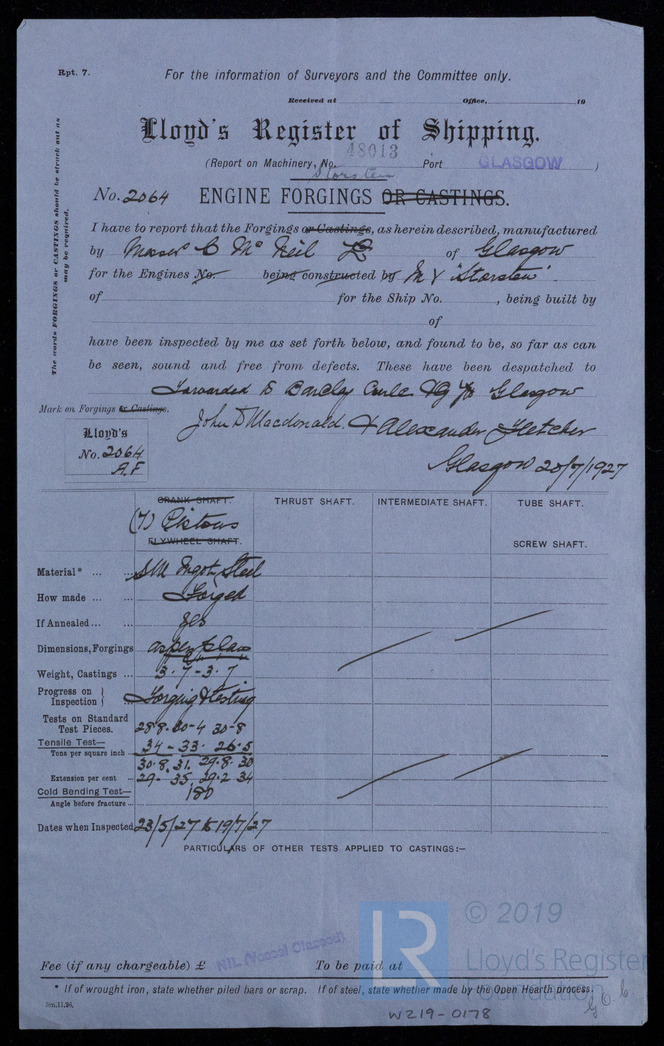 Rpt. 7.
For the information of Surveyors and the Committee only.
Received at Office, 19
Lloyd's Register of Shipping.
(Report on Machinery, No. 48013 Port GLASGOW )
Storsten
No. 2064 ENGINE FORGINGS OR CASTINGS.
The words FORGINGS or CASTINGS should be struck out as
may be required.
I have to report that the Forgings or Castings, as herein described, manufactured
by Messrs C Mc Neil Ld of Glasgow
for the Engines No. being constructed by M V "Storsten"
of for the Ship No. , being built by
of
have been inspected by me as set forth below, and found to be, so far as can
be seen, sound and free from defects. These have been despatched to
Forwarded to Barclay Curle Glasgow
Mark on Forgings or Castings.
John D Macdonald. & Alexander Fletcher
Lloyd's
No. 2064
A.F
Glasgow 20/7/1927
CRANK SHAFT. THRUST SHAFT. INTERMEDIATE SHAFT. TUBE SHAFT.
(7) Pistons
FLYWHEEL SHAFT. SCREW SHAFT.
Material* ... ... SM Ingot Steel
How made ... ... Forged
If Annealed ... ... yes
Dimensions, Forgings as per plan
Weight, Castings ... 3.7-3.7
Progress on Inspection } Forging & testing
Tests on Standard
Test Pieces. 28.8. 30-4 30-8
Tensile Test— 34-33. 26.5
Tons per square inch ... 30.8. 31. 29.8. 30
Extension per cent ... 29- 35. 29.2 34
Cold Bending Test— 180
Angle before fracture ...
Dates when Inspected 23/5/27 to 19/7/27
PARTICULARS OF OTHER TESTS APPLIED TO CASTINGS:—
© 2019
LR
Lloyd's Register
Foundation
NIL (Vessel Classed)
Fee (if any chargeable) £ To be paid at
* If of wrought iron, state whether piled bars or scrap. If of steel, state whether made by the Open Hearth process.
W219-0178